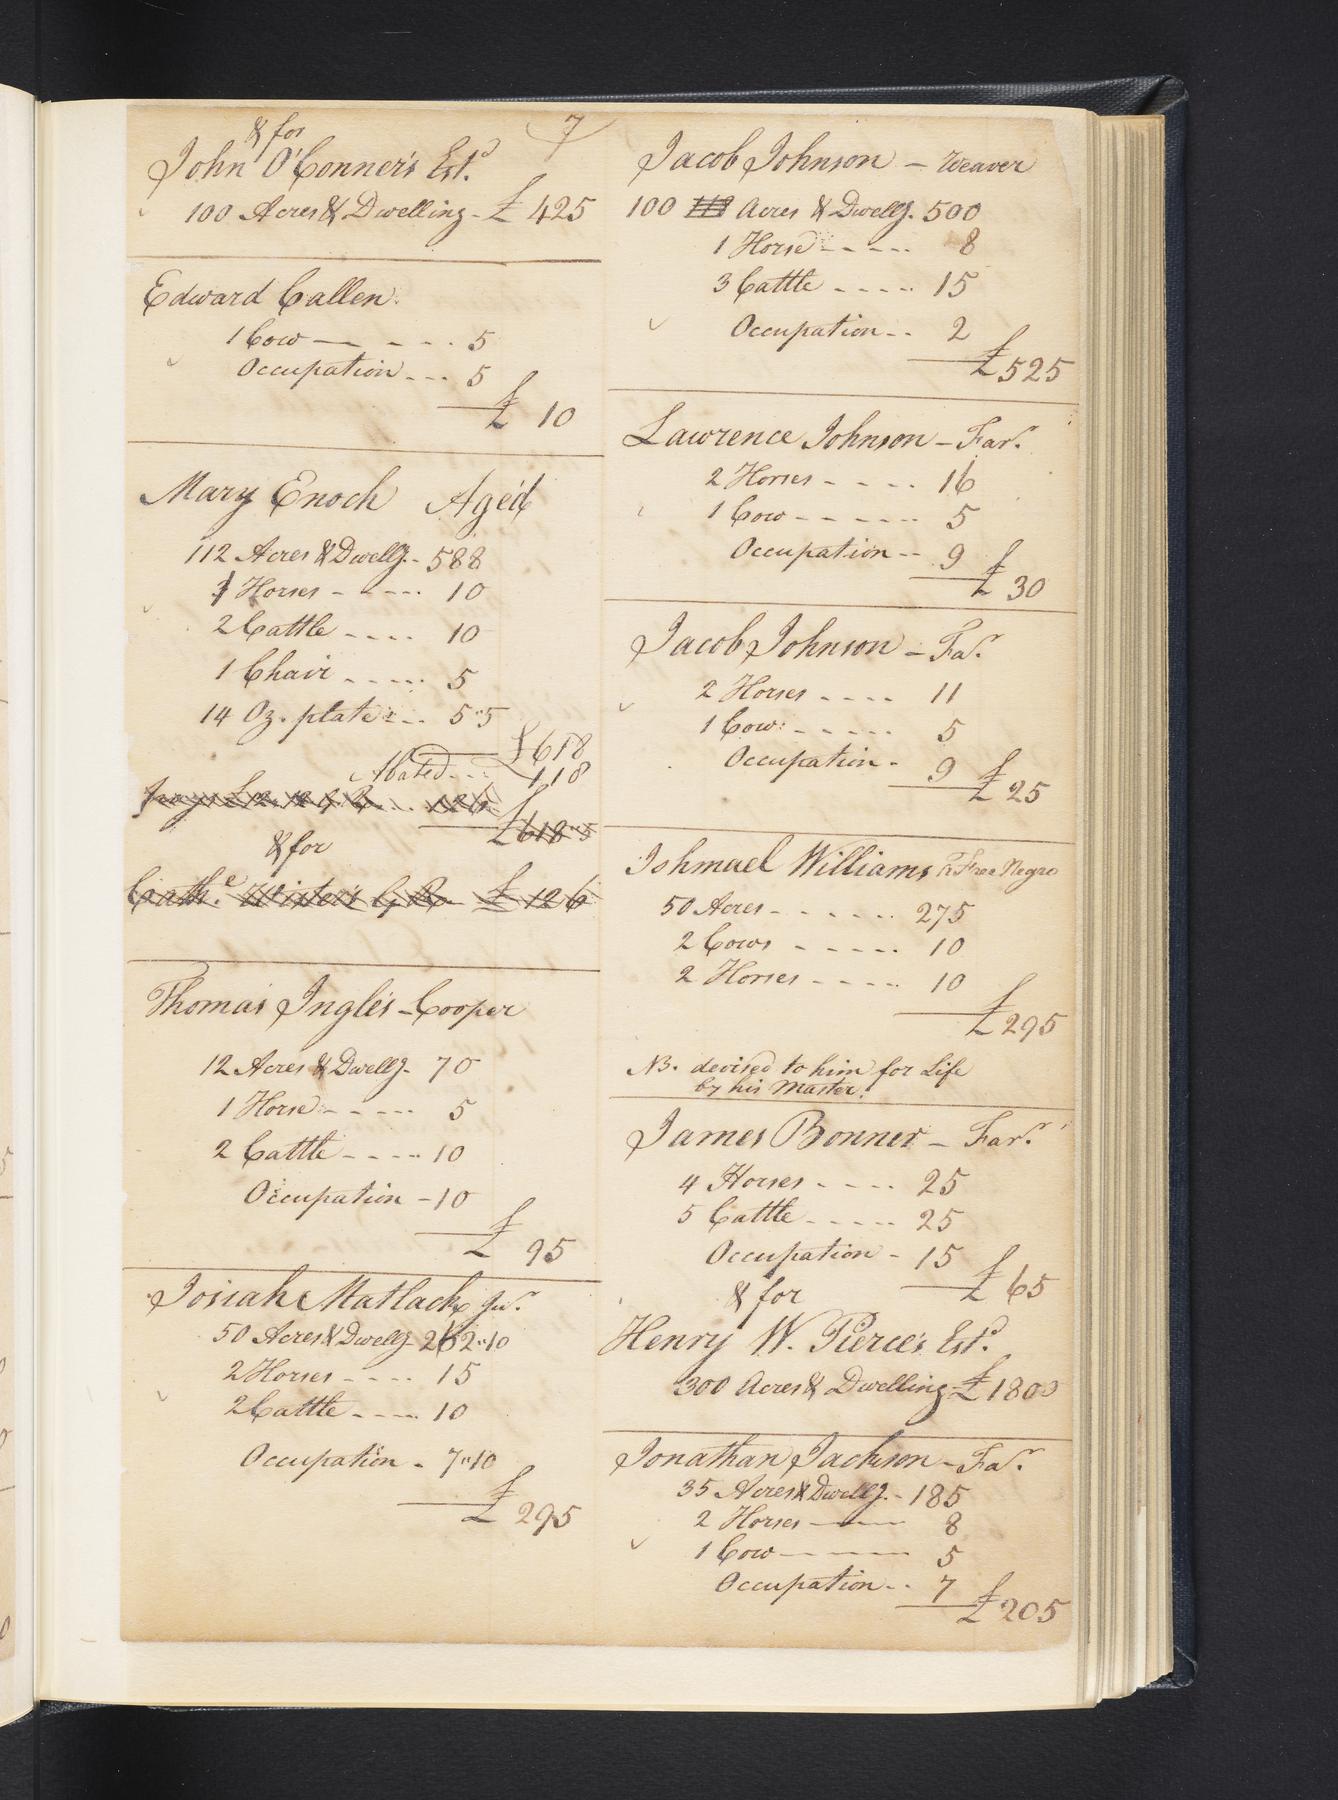 7
& for
John O'Conner's Est.d
100 Acres & Dwelling - £ 425
Edward Callen.
1 Cow - - - - 5
Occupation - - - 5
£ 10
Mary Enoch Aged
112 Acres & Dwellg. - 588
Horses - - - - - 10
2 Cattle - - - - 10
1 Chair - - - - - 5
14 Oz. plate - - - 5"5
£618
Abated - - - 118
126
£618"5
& for
Cath.e Winter's G. R. £ 126
Thomas Ingles - Cooper
12 Acres & Dwellg - 70
1 Horse - - - - - 5
2 Cattle - - - - 10
Occupation - 10
£ 95
Josiah Matlack Ju.r
50 Acres & Dwellg - 262"10
2 Horses - - - - 15
2 Cattle - - - - 10
Occupation - 7"10
£ 295
Jacob Johnson - Weaver
100 Acres & Dwellg. 500
1 Horse - - - - - 8
3 Cattle - - - - - 15
Occupation - - 2
£525
Lawrence Johnson - Far.r
2 Horses - - - - 16
1 Cow - - - - - - 5
Occupation - - 9
£ 30
Jacob Johnson - Fa.r
2 Horses - - - - 11
1 Cow - - - - - - 5
Occupation - 9
£ 25
Ishmael Williams a Free Negro
50 Acres - - - - - - 275
2 Cows - - - - - 10
2 Horses - - - - - 10
£295
NB. devised to him for Life
by his Master.
James Bonner - Far.r
4 Horses - - - - 25
5 Cattle - - - - - 25
Occupation - 15
£ 65
& for
Henry W. Pierce's Est.d
300 Acres & Dwelling - £ 1800
Jonathan Jackson - Fa.r
35 Acres & Dwellg. - 185
2 Horses - - - 8
1 Cow - - - - 5
Occupation - - 7
£205